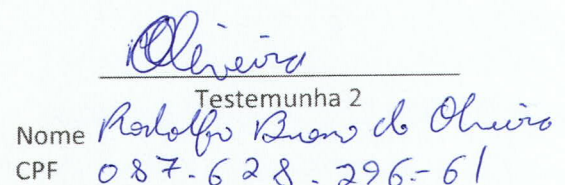 Oliveira
Testemunha 2
Nome Rodolfo Bueno de Oliveira
CPF 087.628.296-61